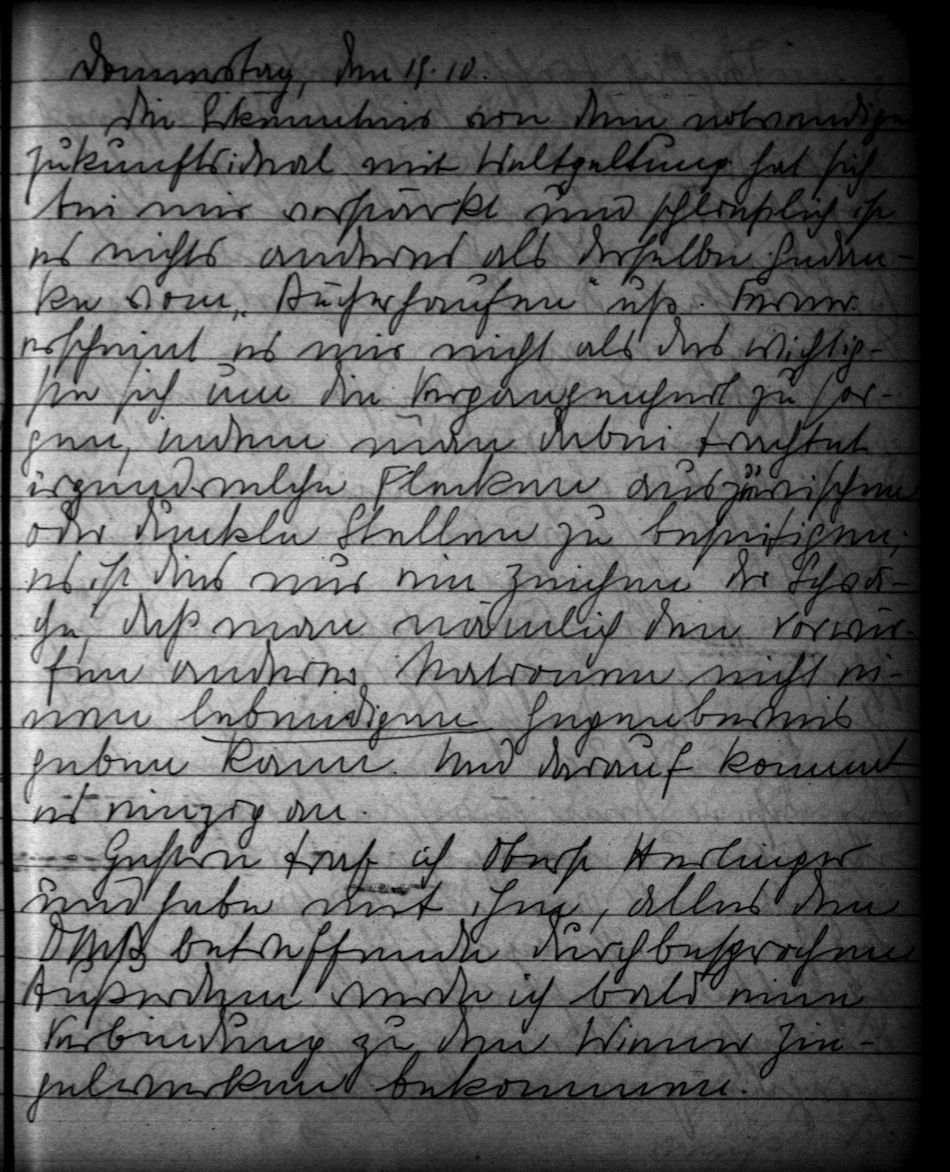 Donnerstag, den 19.10.
Die Erkenntnis von dem notwendigen
Zukunftsideal mit Weltgeltung hat sich
bei mir verstärkt und schließlich ist
es nichts anderes als derselbe Gedan-
ke vom „ usf. Ferner
erscheint es mir nicht als das wichtig-
ste sich um die Vergangenheit zu sor-
gen, indem man dabei trachtet
irgendwelche Flecken auszuwischen
oder dunkle Stellen zu beseitigen;
es ist dies nur ein Zeichen der Schwä-
che, daß man nämlich den Vorwür-
fen anderer Nationen nicht ei-
nen lebendigen Gegenbeweis
geben kann. Und darauf kommt
es einzig an.
Gestern traf ich Oberst
und habe mit ihm, alles den
betreffende durchbesprochen
Außerdem werde ich bald eine
Verbindung zu den Wiener Zie-
gelwerken bekommen.